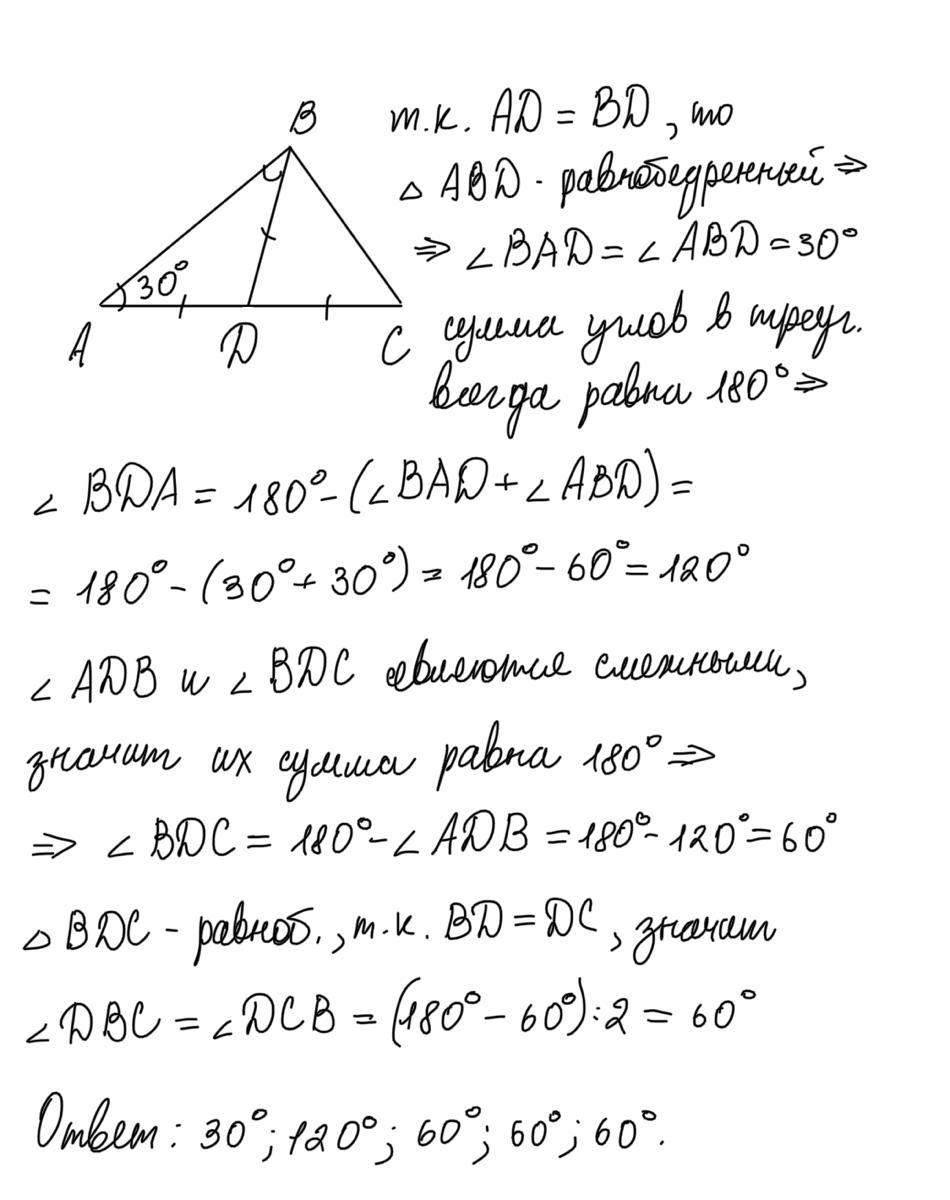 B
30°
A D C
т.к. AD = BD, то
△ ABD - равнобедренный ⇒
⇒ ∠BAD = ∠ABD = 30°
сумма углов в треуг.
всегда равна 180° ⇒
∠ BDA = 180° - (∠BAD + ∠ABD) =
= 180° - (30° + 30°) = 180° - 60° = 120°
∠ ADB и ∠ BDC являются смежными,
значит их сумма равна 180° ⇒
⇒ ∠ BDC = 180° - ∠ ADB = 180° - 120° = 60°
△ BDC - равноб., т.к. BD = DC, значит
∠DBC = ∠DCB = (180° - 60°) : 2 = 60°
Ответ: 30°; 120°; 60°; 60°; 60°.